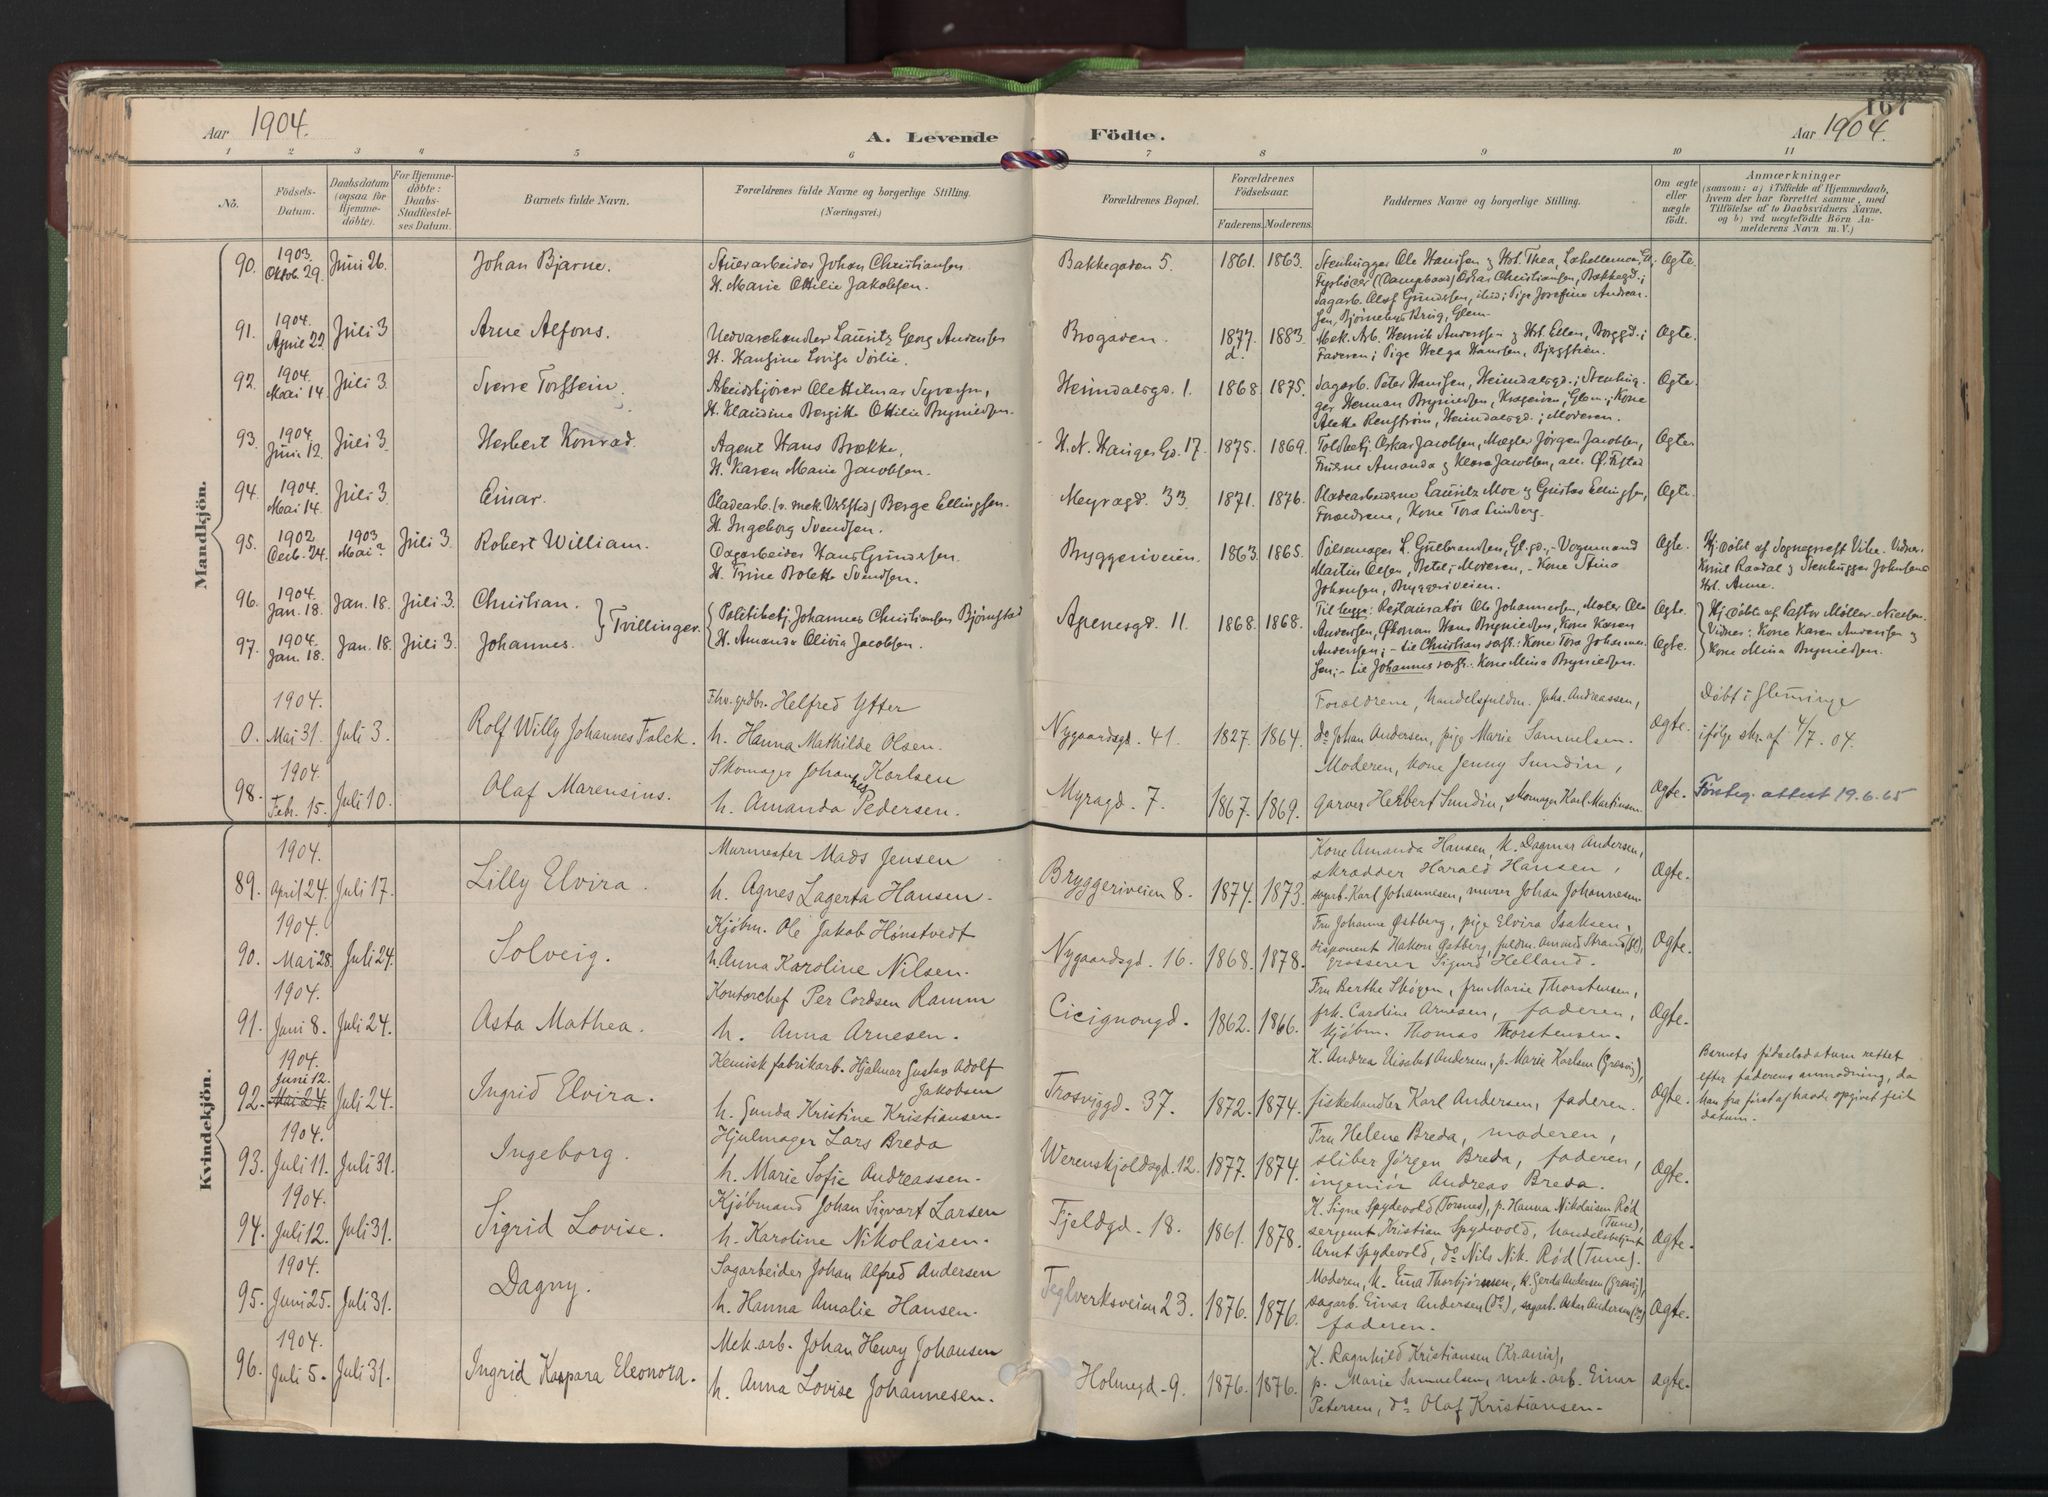 Aar 1904.
A. Levende
Födte.
Aar 1904.
167
1 2 3 4 5 6 7 8 9 10 11
No.
Födsels-Datum.
Daabsdatum (ogsaa for Hjemmedöbte).
For Hjemmedöbte: Daabs-Stadfæstelses Datum.
Barnets fulde Navn.
Forældrenes fulde Navne og borgerlige Stilling.
(Næringsvei.)
Forældrenes Bopæl.
Forældrenes Födselsaar.
Faderens. Moderens.
Faddernes Navne og borgerlige Stilling.
Om ægte eller uægte födt.
Anmærkninger
(saasom: a) i Tilfælde af Hjemmedaab, hvem der har forrettet samme, med Tilföielse af to Daabsvidners Navne, og b) ved uægtefödte Börn Anmelderens Navn m. V.)
Mandkjön.
90. 1903. Oktob. 29. Juni 26. Johan Bjarne. Johan Christiansen
H. Marie Ottilie Jakobsen. Bakkegaden 5. 1861. 1863. Stenhugger Ole Hansen og Hst. Thea,
Oskar Christiansen, Bakkegd.;
Sagarb. Olaf Gundersen, ibid; Pige Josefine Andreasen, Glem. Ægte.
91. 1904. April 22 Juli 3 Arne Alfons. Vedvarehandler Lauritz Georg Andersen
H. Hansine Lovise Sørlie. Brogaden. 1877. 1883. Mek. Arb. Henrik Andersen og Hst. Ellen, Borggd.;
Faderen; Pige Helga Hansen, Bjergstien. Ægte.
92. 1904. Mai 14. Juli 3. Sverre Torstein. Arbeidskjører Ole Hilmar Syversen,
H. Klaudine Bergitte Ottilie Bryniedsen. Heimdalsgd. 1. 1868. 1875. Sagarb. Peter Hansen, Heimdalsgd.; Stenhugger Herman Bryniedsen, Krageröen, Glem.; Kone
Renstrøm, Heimdalsgd.; Moderen. Ægte
93. 1904. Juni 12. Juli 3. Herbert Konrad. Agent Hans Brække,
H. Karen Marie Jacobsen. H. N. Hauges Gd. 17. 1875. 1869. Toldbetj. Oskar Jacobsen, Mægler Jørgen Jacobsen,
Fruerne Amanda og Klara Jacobsen, alle Ø. Fr.stad Ægte
94. 1904. Mai 14. Juli 3. Einar. Pladearb. (v. mek. Verksted) Berge Ellingsen.
H. Ingeborg Svendsen. Meyragd. 33. 1871. 1876. Pladearbeiderne Lauritz Moe og Gustav Ellingsen,
Forældrene, Kone Tora Lindberg. Ægte
95. 1902 Decb. 24. 1903 Mai? Juli 3. Robert William. Dagarbeider Hans Gundersen.
H. Trine Bolette Svendsen. Bryggeriveien. 1863. 1865. Pølsemager L. Gulbrandsen, Gl. gd., - Vognmand
Martin Olsen, Betel; Moderen, - Kone Stina
Johansen, Bryggeriveien. Ægte. Hj. døbt af Sogneprest Vihe. Vidner.
Knut Raadal og Stenhugger Johnsens
Hst. Anne.
96. 1904. Jan. 18. Jan. 18. Juli 3. Christian. } Tvillinger. Politibetj. Johannes Christiansen Bjørnstad
97. 1904. Jan. 18. Jan. 18. Juli 3. Johannes. H. Amanda Olivia Jacobsen. Agnesgd. 11. 1868. 1868. Til begge: Restauratør Ole Johannessen, Maler Ole
Andersen, Økonom Hans Bryniedsen, Kone Karen
Andersen; - til Christian særsk.: Kone Tora Johannessen; - til Johannes særsk.: Kone Mina Bryniedsen. Ægte. Ægte. Hj. døbt af Pastor Møller-Nielsen.
Vidner: Kone Karen Andersen og
Kone Mina Bryniedsen.
0. 1904. Mai 31. Juli 3. Rolf Willy Johannes Falck. Fhv. grdbr. Helfred Ytter
h. Hanna Mathilde Olsen. Nygaardsgd. 41. 1827. 1864. Forældrene, handelsfuldm. Johs. Andreassen,
do Johan Andersen, pige Marie Samuelsen. Ægte. Døbt i Glemminge
ifølge skr. af 4/7. 04.
98. 1904. Febr. 15. Juli 10. Olaf Marensius. Skomager Johannes Karlsen
h. Amanda Pedersen. Myragd. 7. 1867. 1869. Moderen, kone Jenny Sundin,
garver Herbert Sundin, skomager Karl Martinsen. Ægte. Førsteg. attest 19.6.65
Kvindekjön.
89. 1904. April 24 Juli 17. Lilly Elvira. Murmester Mads Jensen
h. Agnes Lagerta Hansen. Bryggeriveien 8. 1874. 1873. Kone Amanda Hansen, k. Dagmar Andersen,
skrædder Harald Hansen,
sagarb. Karl Johannesen, murer Johan Johannesen Ægte.
90. 1904. Mai 28. Juli 24. Solveig. Kjøbm. Ole Jakob Hønstvedt
h. Anna Karoline Nilsen. Nygaardsgd. 16. 1868. 1878. Fru Johanne Østberg, pige Elvira Isaksen,
disponent Hakon Østberg, fuldm. Amund Strand (Gl.),
grosserer Sigurd Helland. Ægte.
91. 1904. Juni 8. Juli 24. Asta Mathea. Kontorchef Per Cordsen Ramm
h. Anna Arnesen. Cicignongd. 1862. 1866. Fru Berthe Skøgen, fru Marie Thorstensen,
frk. Caroline Arnesen, faderen,
kjøbm. Thomas Thorstensen. Ægte.
92. 1904 Juni 12. Mai 24. Juli 24. Ingrid Elvira. Kemisk fabrikarb. Hjalmar Gustav Adolf
Jakobsen
h. Gunda Kristine Kristiansen. Trosviggd. 37. 1872. 1874. K. Andrea Elisabet Andersen, p. Marie Karlsen (Græsvig),
fiskehandler Karl Andersen, faderen. Ægte. Barnets fødselsdatum rettet
efter faderens anmodning, da
han fra først af havde opgivet feil
datum.
93. 1904. Juli 11. Juli 31. Ingeborg. Hjulmager Lars Breda
h. Marie Sofie Andreassen. Werenskjoldsgd. 12. 1877. 1874. Fru Helene Breda, moderen,
sliber Jörgen Breda, faderen,
ingeniör Andreas Breda. Ægte.
94. 1904. Juli 12. Juli 31. Sigrid Lovise. Kjöbmand Johan Sigvart Larsen
h. Karoline Nikolaisen. Fjeldgd. 18. 1861. 1878. K. Signe Spydevold (Torsnes), p. Hanna Nikolaisen Rød
(Tune),
sergent Kristian Spydevold, handelsbetjent
Arnt Spydevold, do Nils Nik. Rød (Tune). Ægte.
95. 1904. Juni 25. Juli 31. Dagny. Sagarbeider Johan Alfred Andersen
h. Hanna Amalie Hansen. Teglverksveien 23. 1876. 1876. Moderen, k. Ema Thorbjørnsen, k. Gerda Andersen (Græsvig),
sagarb. Einar Andersen (do), sagarb. Oskar Andersen (do)
faderen. Ægte.
96. 1904. Juli 5. Juli 31. Ingrid Kaspara Eleonora. Mek. arb. Johan Henry Johansen
h. Anna Lovise Johannesen. Holmegd. 9. 1876. 1876. K. Ragnhild Kristiansen (Kr.ania),
p. Marie Samuelsen, mek. arb. Einar
Petersen, do Olaf Kristiansen. Ægte.